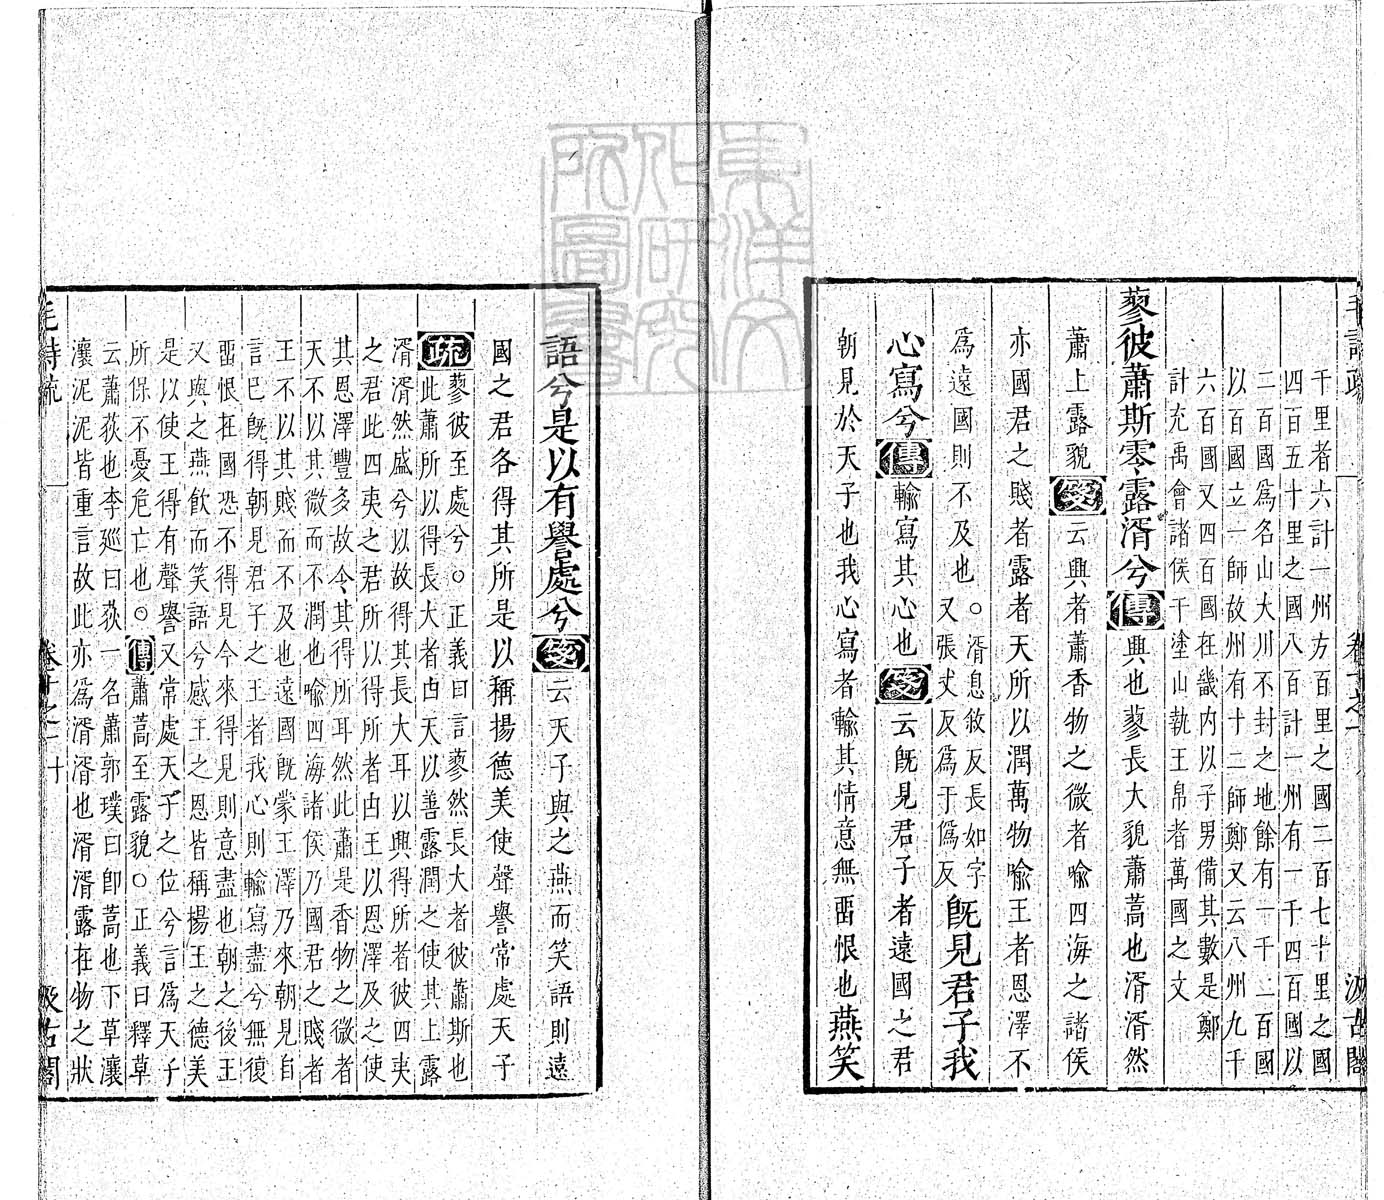 千里者六計一州方百里之國二百七十里之國
四百五十里之國八百計一州有一千四百國以
二百國爲名山大川不封之地餘有一千二百國
以百國立一師故州有十二師鄭又云八州九千
六百國又四百國在畿内以子男備其數是鄭
計充禹會諸侯于塗山執玉帛者萬國之文
蓼彼蕭斯零露湑兮傳興也蓼長大貌蕭蒿也湑湑然
蕭上露貌箋云興者蕭香物之微者喻四海之諸侯
亦國君之賤者露者天所以潤萬物喻王者恩澤不
爲遠國則不及也○湑息敘反長如字
又張丈反爲于僞反既見君子我
心寫兮傳輸寫其心也箋云既見君子者遠國之君
朝見於天子也我心寫者輸其情意無畱恨也燕笑
毛詩疏 卷十之一 汲古閣
語兮是以有譽處兮箋云天子與之燕而笑語則遠
國之君各得其所是以稱揚德美使聲譽常處天子
疏蓼彼至處兮○正義曰言蓼然長大者彼蕭斯也
此蕭所以得長大者由天以善露潤之使其上露
湑湑然盛兮以故得其長大耳以興得所者彼四夷
之君此四夷之君所以得所者由王以恩澤及之使
其恩澤豐多故令其得所耳然此蕭是香物之微者
天不以其微而不潤也喻四海諸侯乃國君之賤者
王不以其賤而不及也遠國既蒙王澤乃來朝見自
言已既得朝見君子之王者我心則輸寫盡兮無復
畱恨在國恐不得見今來得見則意盡也朝之後王
又與之燕飲而笑語兮感王之恩皆稱揚王之德美
是以使王得有聲譽又常處天子之位兮言爲天子
所保不憂危亡也○傳蕭蒿至露貌○正義曰釋草
云蕭荻也李廵曰荻一名蕭郭璞曰卽蒿也下草瀼
瀼泥泥皆重言故此亦爲湑湑也湑湑露在物之狀
毛詩疏 卷十之一 十 汲古閣